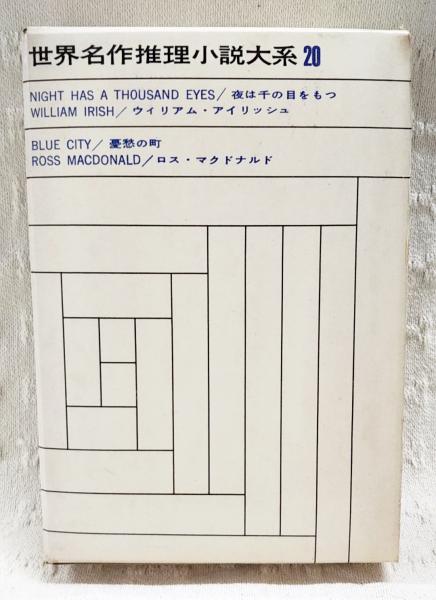 世界名作推理小説大系 20
NIGHT HAS A THOUSAND EYES/夜は千の目をもつ
WILLIAM IRISH/ウィリアム・アイリッシュ
BLUE CITY/憂愁の町
ROSS MACDONALD/ロス・マクドナルド